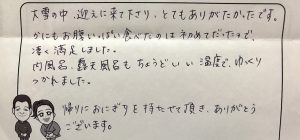 大雪の中、迎えに来て下さり、とてもありがたかったです。
かにもお腹いっぱい食べたのは初めてだったので、
凄く満足しました。
内風呂、露天風呂もちょうどいい温度で、ゆっくり
つかれました。
帰りにおにぎりを持たせて頂き、ありがとう
ございます。